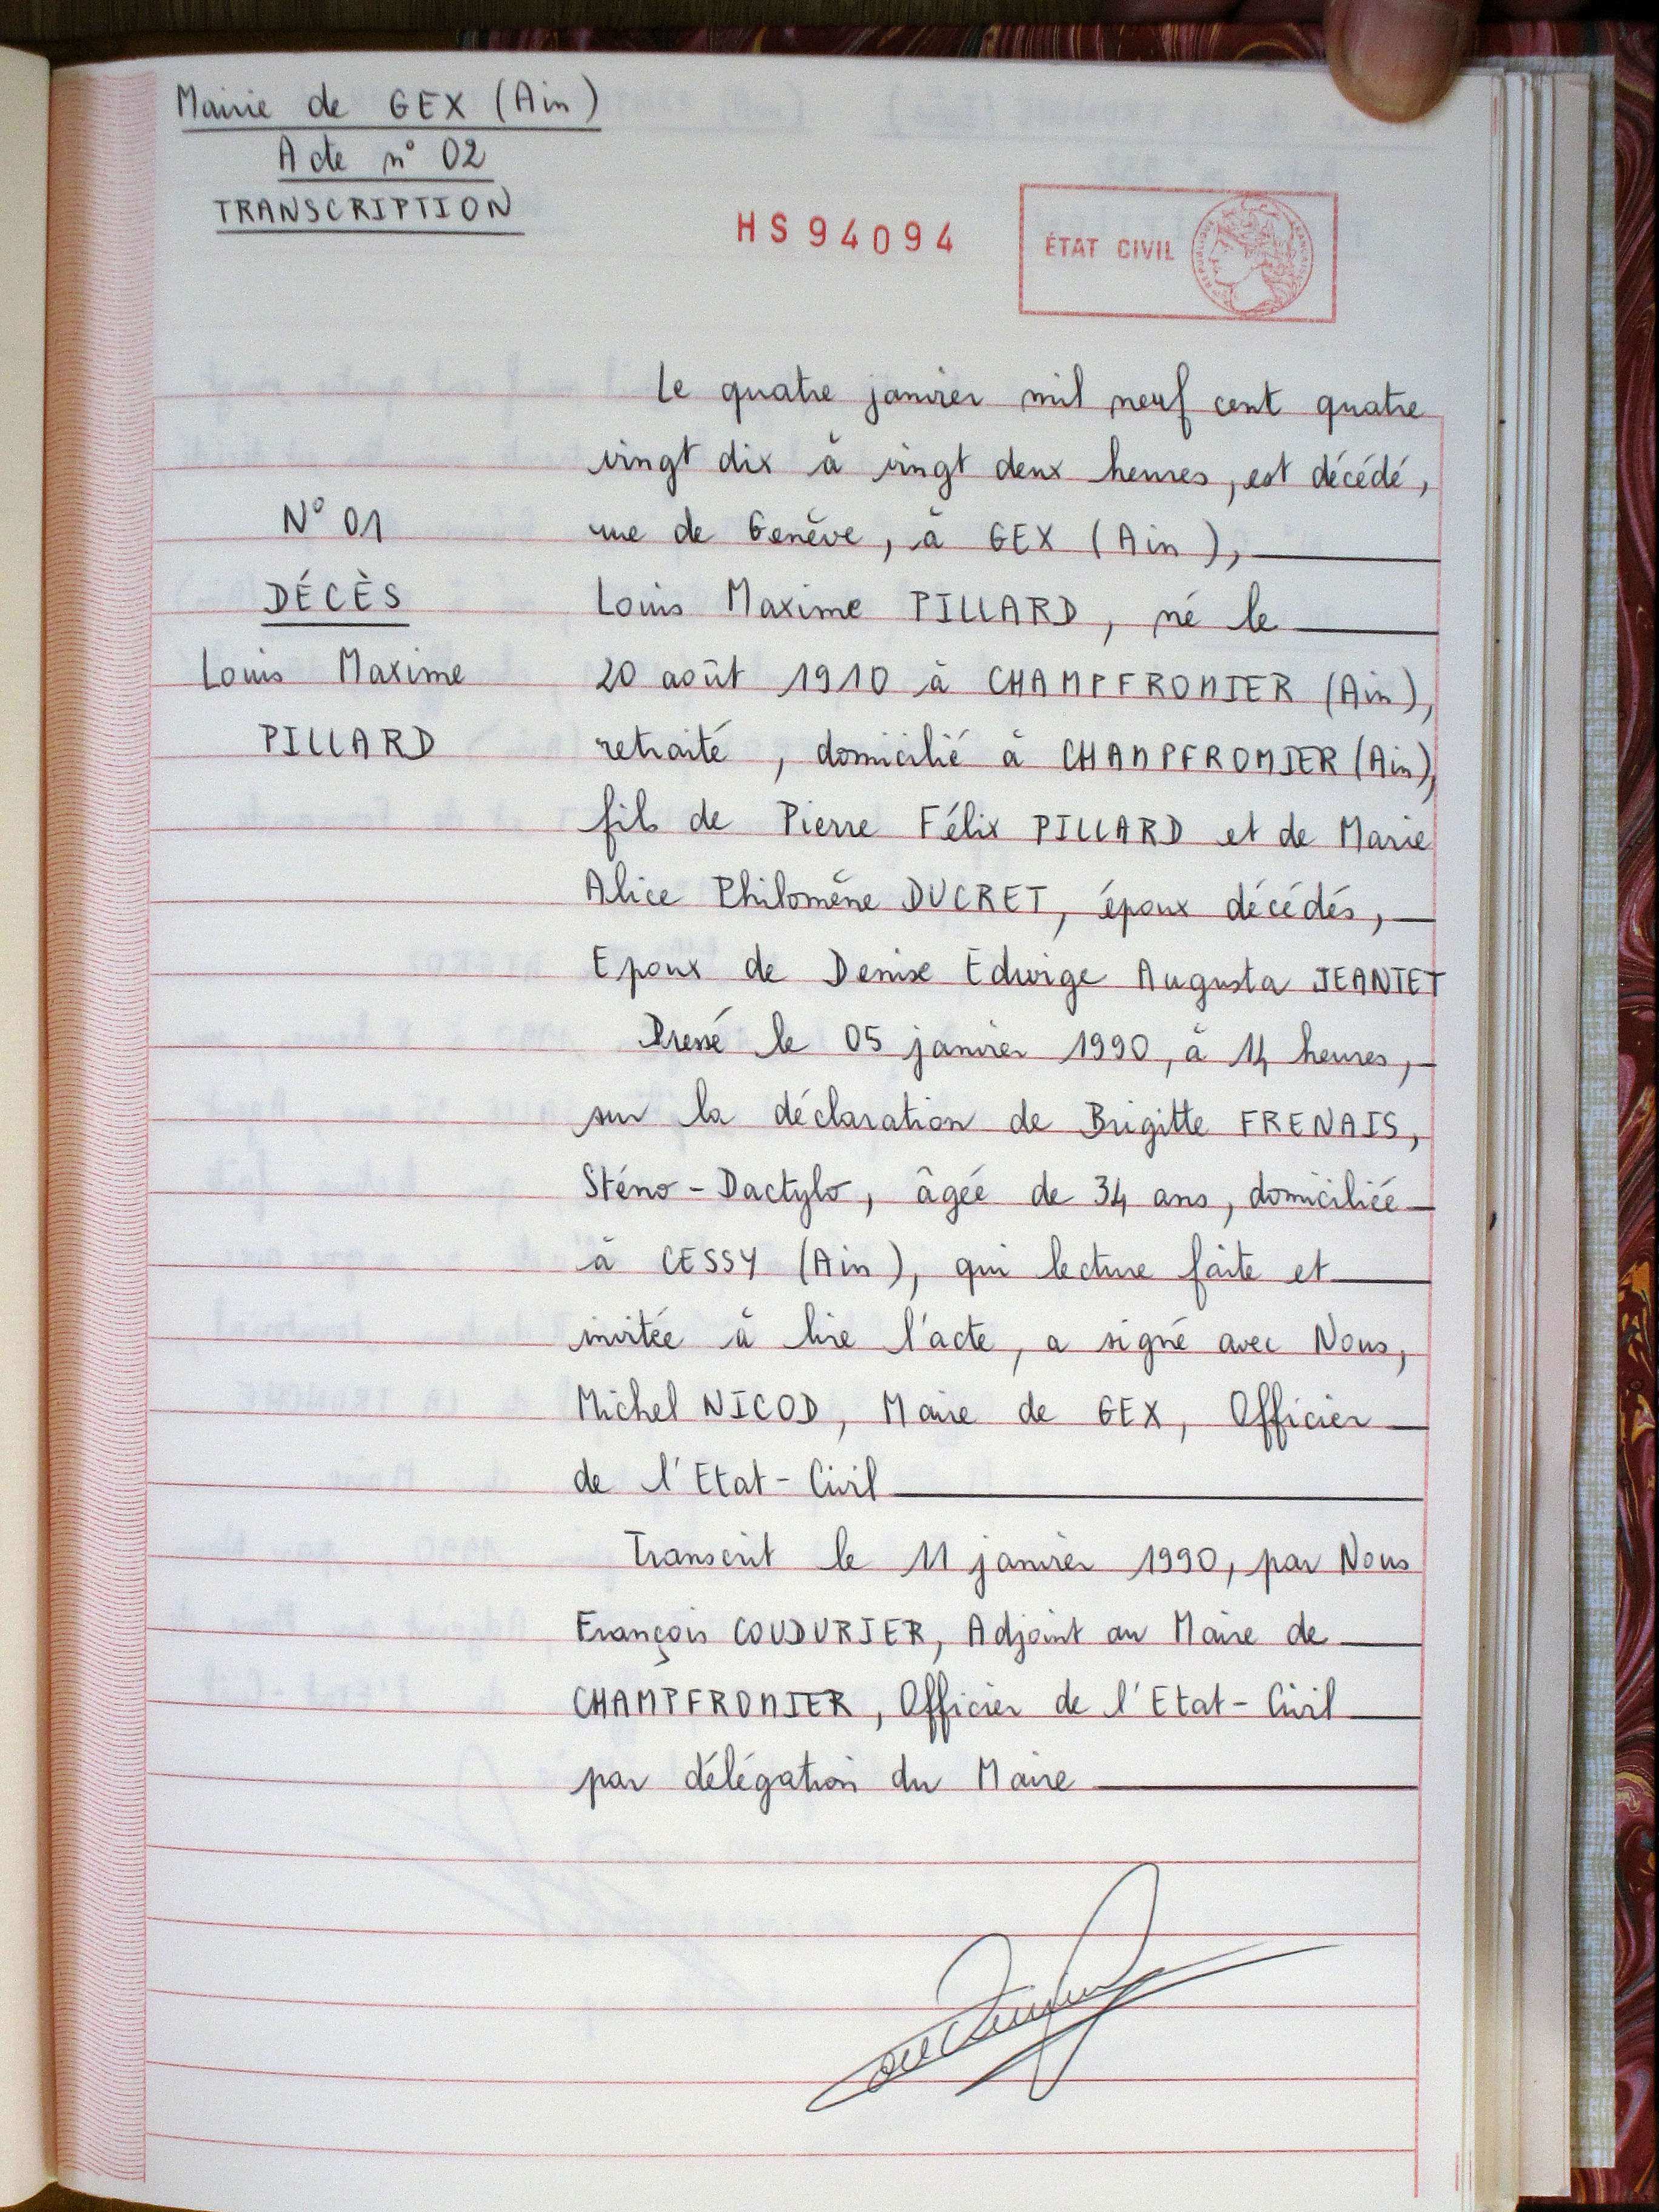 Mairie de GEX (Ain)
Acte n° 02
TRANSCRIPTION
HS94094
ÉTAT CIVIL
RÉPUBLIQUE FRANÇAISE
Le quatre janvier mil neuf cent quatre
vingt dix à vingt deux heures, est décédé,
N° 01
rue de Genève, à GEX (Ain),
DÉCÈS
Louis Maxime PILLARD, né le
Louis Maxime
20 août 1910 à CHAMPFROMIER (Ain),
PILLARD
retraité, domicilié à CHAMPFROMIER (Ain),
fils de Pierre Félix PILLARD et de Marie
Alice Philomène DUCRET, époux décédés,
Epoux de Denise Edwige Augusta JEANTET
Dressé le 05 janvier 1990, à 14 heures,
sur la déclaration de Brigitte FRENAIS,
Sténo-Dactylo, âgée de 34 ans, domiciliée
à CESSY (Ain), qui lecture faite et
invitée à lire l'acte, a signé avec Nous,
Michel NICOD, Maire de GEX, Officier
de l'Etat-Civil
Transcrit le 11 janvier 1990, par Nous
François COUDURIER, Adjoint au Maire de
CHAMPFROMIER, Officier de l'Etat-Civil
par délégation du Maire